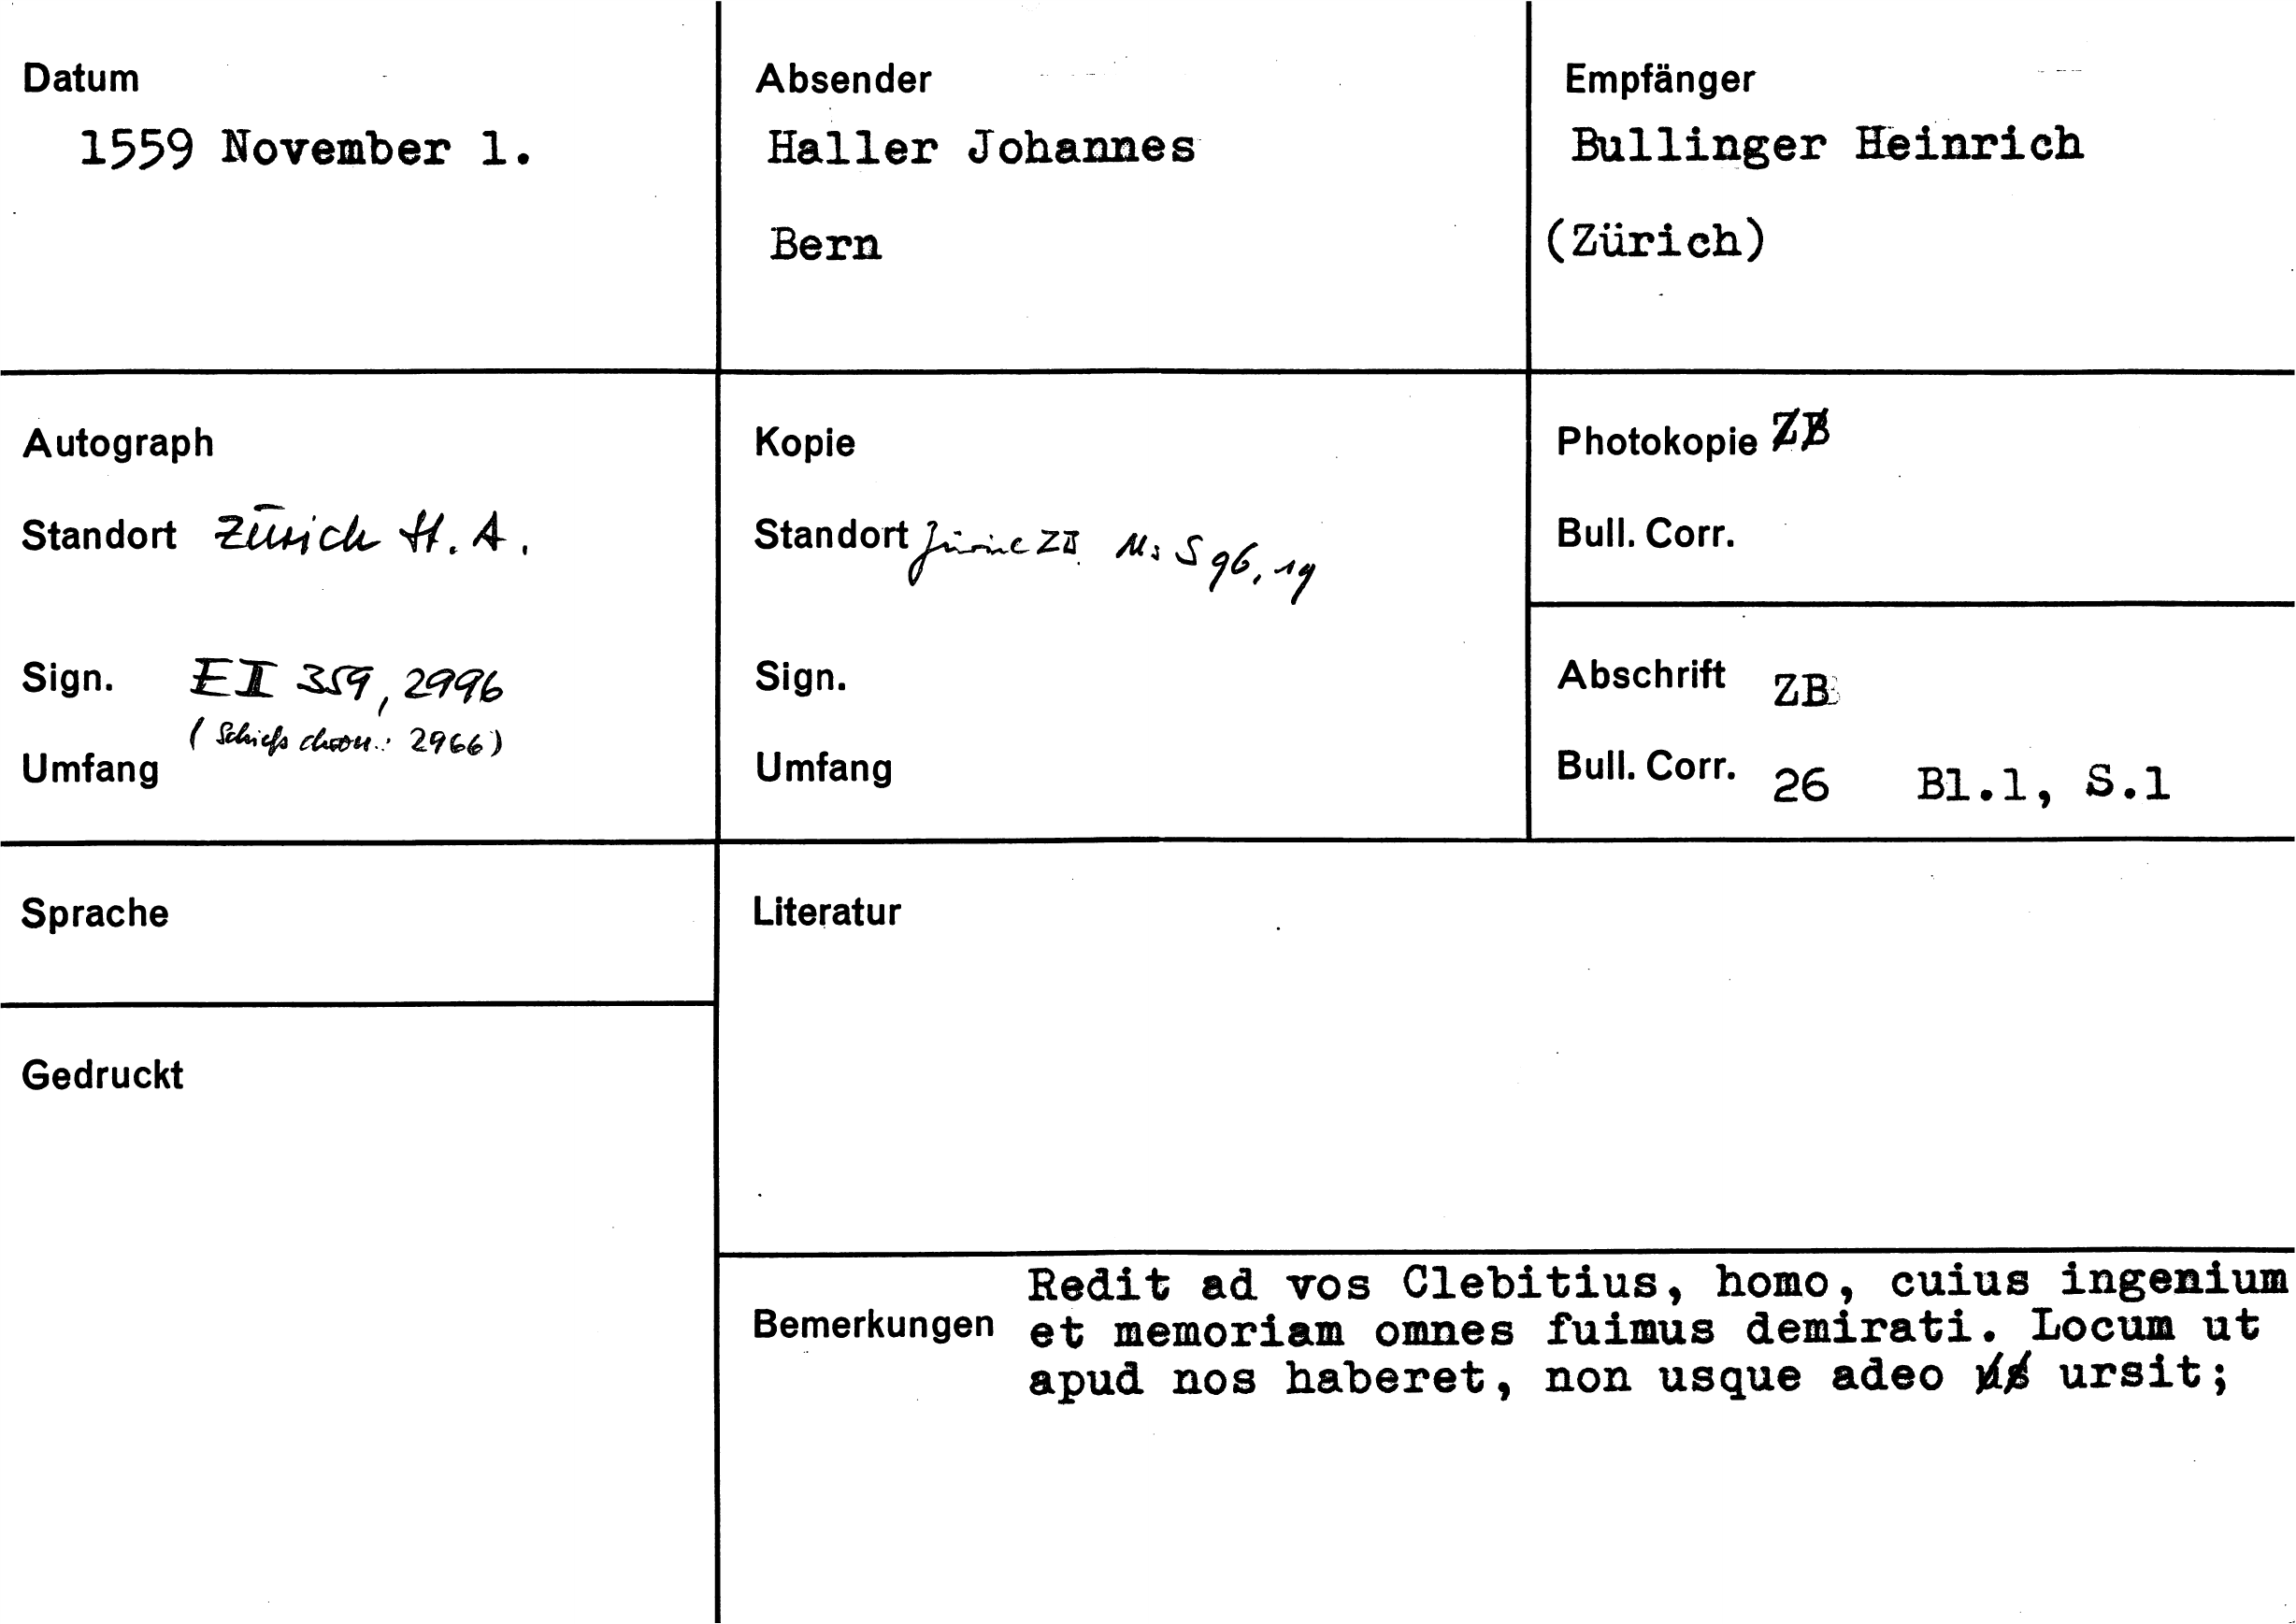 Datum
1559 November 1.
Absender
Haller Johannes
Bern
Empfänger
Bullinger Heinrich
(Zürich)
Autograph
Standort Zürich St. A.
Sign. E II 359, 2996
(Schieß chron.: 2966)
Umfang
Kopie
Standort Zürich ZB Ms S 96, 19
Sign.
Umfang
Photokopie ZB
Bull. Corr.
Abschrift ZB
Bull. Corr. 26 Bl.1, S.1
Sprache
Literatur
Gedruckt
Bemerkungen
Redit ad vos Clebitius, homo, cuius ingenium
et memoriam omnes fuimus demirati. Locum ut
apud nos haberet, non usque adeo ursit;